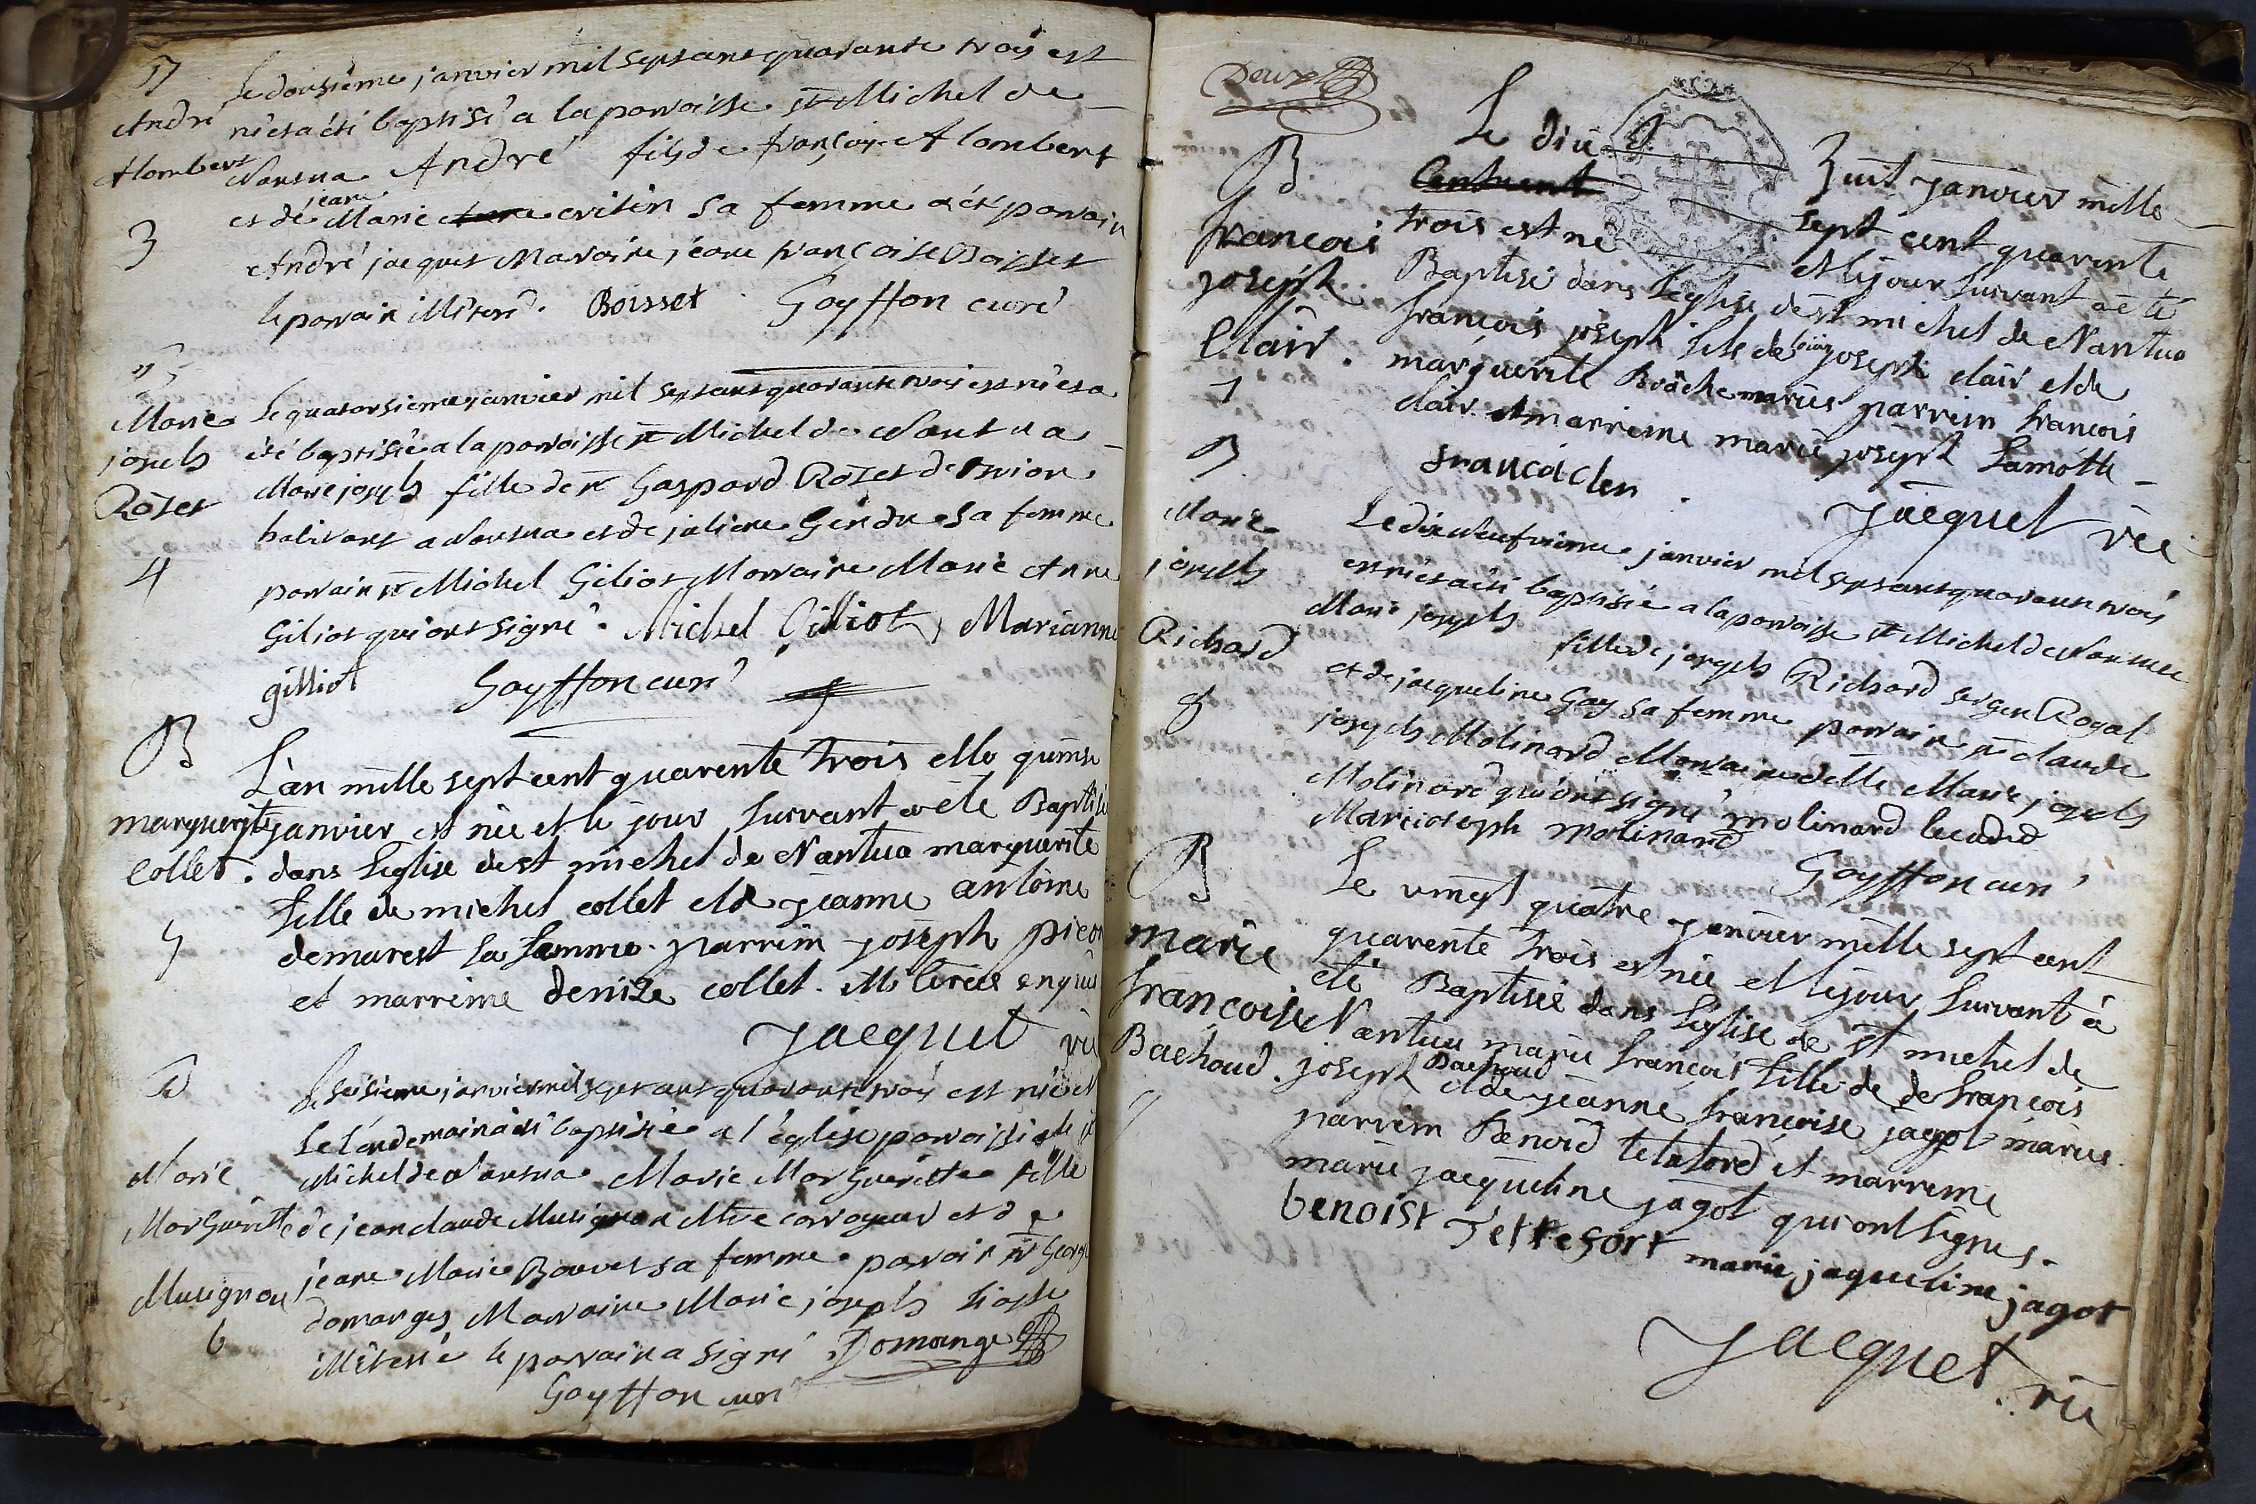 B
André
Alombert
3
Le dousième janvier mil septcent quarante trois est
né et a été baptisé a la parroisse st Michel de
Nantua André fils de françois Alombert
jeane
et de Marie sa femme a été parrain
André jacquet Marraine jéane françoise Boisset
le parrain illiteré. Boisset Goyffon curé
B
Marie
joseph
Rozet
4
Le quatorsieme janvier mil septcent quarante trois est né et a
été baptisée a la parroisse st Michel de Nantua
Marie joseph fille de sr Gaspard Rozet de
habitant a Nantua et de juliene Gendre sa femme
parrain sr Michel Giliot Marraine Marie Anne
Giliot qui ont signé. Michel Gilliot, Marianne
gilliot Goyffon curé
B
marguerite
Collet.
5
L'an mille sept cent quarente trois et le quinse
janvier est née et le jour suivant a été Baptisée
dans l'eglise de st michel de Nantua marguerite
fille de michel collet et de jeanne antoine
demarest sa femme. parrein joseph picon
et marreine denize collet. Illiterés enquis
jacquet vic
B
Marie
Marguéritte
Musignon
6
Le seisieme janvier mil septcent quarante trois est née et
le lendemain a été baptisée a l'église parroissiale st
Michel de Nantua Marie Marguéritte fille
de jean claude Musignon Mtre corroyeur et de
jeane Marie Bouvet sa femme. parrain sr George
domanges Marraine Marie joseph
illiterée le parrain a signé Domange
Goyffon curé
Deux
B
françois
joseph
Clair.
7
Le diu
huit janvier mille
sept cent quarente
trois est né et le jour suivant a été
Baptisé dans l'eglise de st michel de Nantua
françois joseph fils de joseph clair et de
marguerite Broche mariés parrein françois
clair et marreine marie joseph Lamotte
francoi clen.
jacquet vic
B
Marie
joseph
Richard
8
Le dix neufvieme janvier mil septcent quarante trois
est née et a été baptisée a la parroisse st Michel de Nantua
Marie joseph fille de joseph Richard sergen Royal
et de jacqueline Gay sa femme parrain sr claude
joseph Molinard Marraine delle Marie joseph
Molinard qui ont signé molinard le cadet
Marie ioseph molinard
Goyffon curé
B
marie
françoise
Bachoud.
9
Le vingt quatre janvier mille sept cent
quarente trois est née et le jour suivant à
été Baptisée dans l'eglise de st michel de
Nantua marie françoise fille de de françois
joseph Bachoud et de jeanne françoise jagot mariés.
parrein Benoid tetaford et marreine
marie jacqueline jagot qui ont signés.
benoist Tettefort marie jaqueline jagot
Jacquet. vic